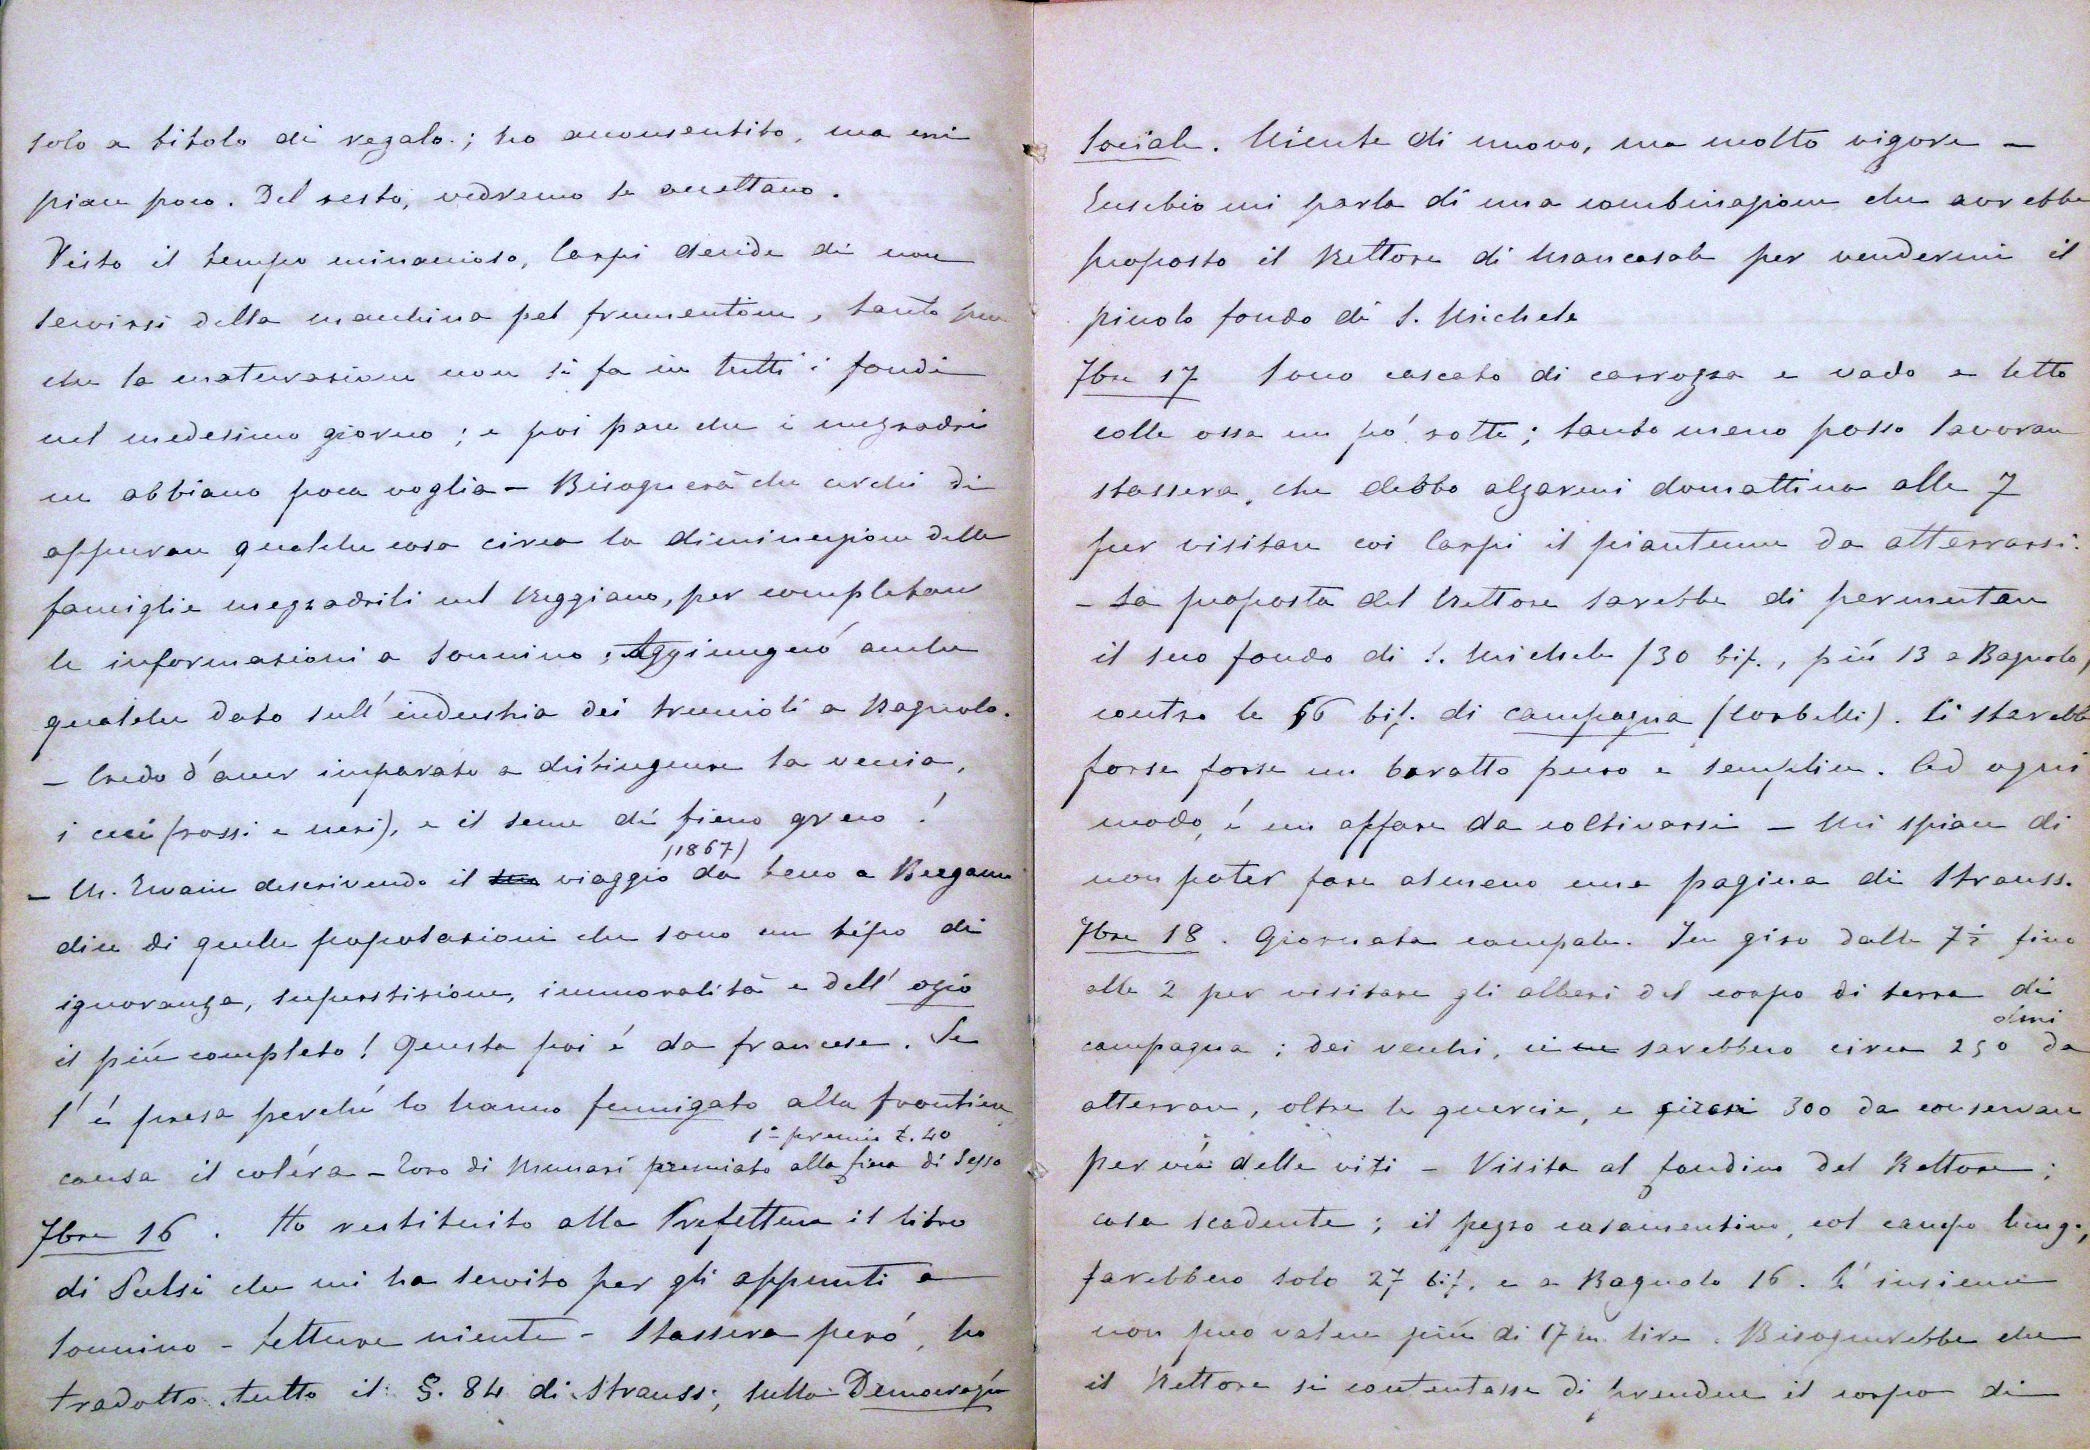 solo a titolo di regalo; ho acconsentito, ma mi
piace poco. Del resto, vedremo se accettano.
Visto il tempo minaccioso, Carpi decide di non
servirsi della macchina pel frumentone, tanto più
che la maturazione non si fa in tutti i fondi
nel medesimo giorno; e poi pare che i mezzadri
ne abbiano poca voglia – Bisognerà che cerchi di
appurare qualche cosa circa la diminuzione delle
famiglie mezzadrili nel Reggiano, per completare
le informazioni a Sonnino; Aggiungerò anche
qualche dato sull'industria dei truccioli a Bagnolo.
– Credo d'aver imparato a distinguere la veccia,
i ceci (rossi e neri), e il seme di fieno greco!
(1867)
– M. Twain descrivendo il viaggio da Lecco a Bergamo
dice di quelle popolazioni che sono un tipo di
ignoranza, superstizione, immoralità e dell'ozio
il più completo! Questa poi é da francese. Se
l'é presa perché lo hanno fumigato alla frontiera
1° premio £. 40
causa il coléra – Toro di Munari premiato alla fiera di Sesso
7bre 16. Ho restituito alla Prefettura il libro
di Sulsi che mi ha servito per gli appunti a
Sonnino – Letture niente – Stassera peró, ho
tradotto tutto il §. 84 di Strauss, sulla Democrazia
Sociale. Niente di nuovo, ma molto vigore –
Eusebio mi parla di una combinazione che avrebbe
proposto il Rettore di Mancasale per vendermi il
piccolo fondo di S. Michele
7bre 17 Sono cascato di carrozza e vado a letto
colle ossa un pó rotte; tanto meno posso lavorare
stassera, che debbo alzarmi domattina alle 7
per visitare coi Carpi il piantume da atterrarsi.
– La proposta del Rettore sarebbe di permutare
il suo fondo di S. Michele (30 bif., piú 13 a Bagnolo)
contro le 66 bif. di campagna (Corbelli). Ci starebbe
forse forse un baratto puro e semplice. Ad ogni
modo, é un affare da coltivarsi – Mi spiace di
non poter fare almeno una pagina di Strauss.
7bre 18. Giornata campale. In giro dalle 7½ fino
alle 2 per visitare gli alberi del corpo di terra di
olmi
campagna; dei vecchi, ci sarebbero circa 250 da
atterrare, oltre le quercie, e 300 da conservare
per via delle viti – Visita al fondino del Rettore;
casa scadente; il pezzo casamentivo, col campo lungo,
sarebbero solo 27 bif. e a Bagnolo 16. L'insieme
non puo valere piú di 17 m. lire. Bisognerebbe che
il Rettore si contentasse di prendere il corpo di